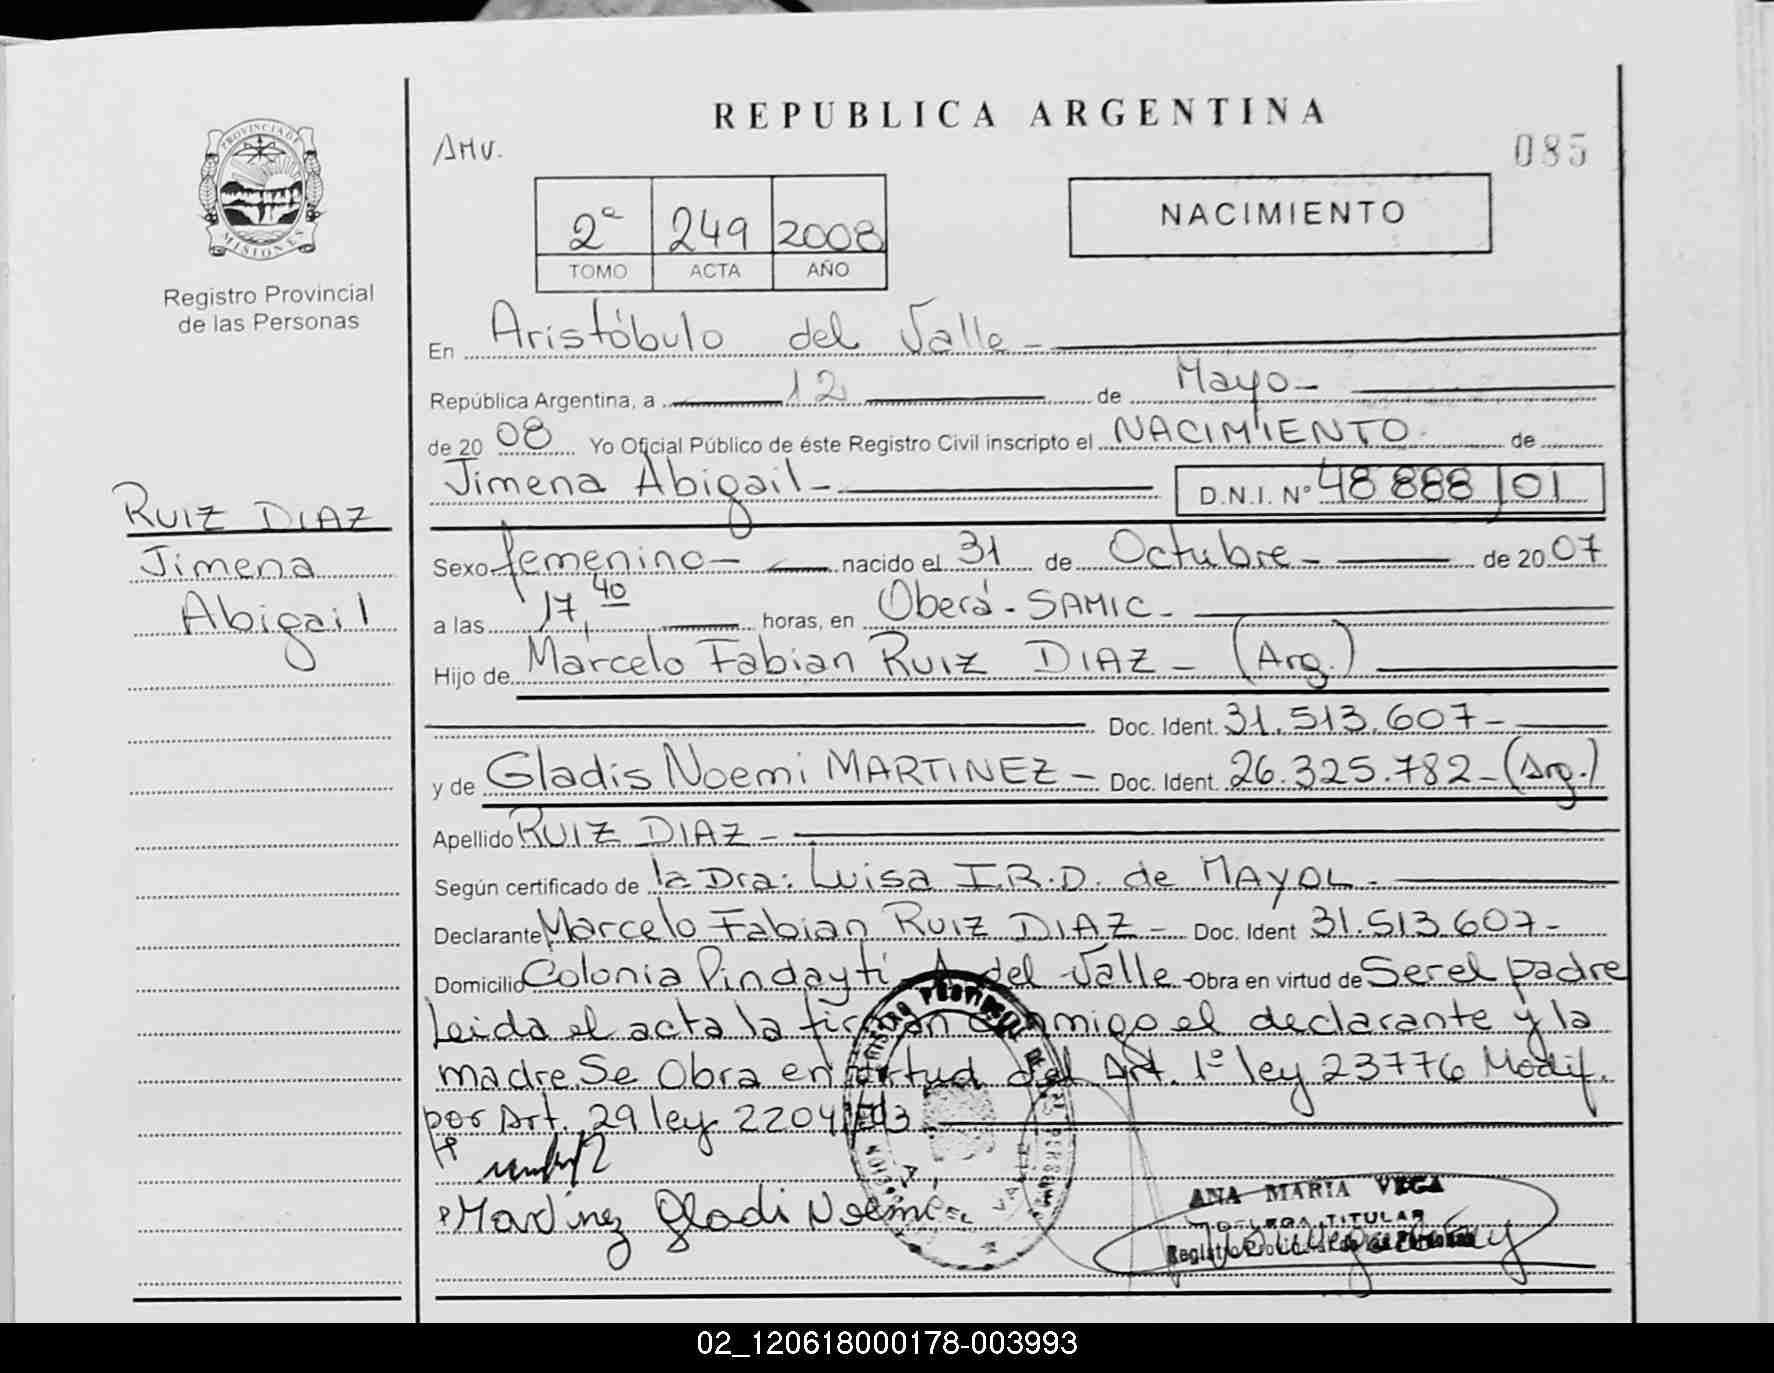 REPUBLICA ARGENTINA
AHV.
085
PROVINCIA DE
MISIONES
Registro Provincial
de las Personas
2ª 249 2008
TOMO ACTA AÑO
NACIMIENTO
En Aristóbulo del Valle-
República Argentina, a 12 de Mayo-
de 2008 Yo Oficial Público de éste Registro Civil inscripto el NACIMIENTO de
Jimena Abigail- D.N.I. Nº 48 888 101
RUIZ DIAZ
Jimena
Abigail
Sexo femenino- nacido el 31 de Octubre- de 2007
a las 17,40 horas, en Oberá - SAMIC-
Hijo de Marcelo Fabian RUIZ DIAZ- (Arg.)
Doc. Ident. 31.513.607-
y de Gladis Noemi MARTINEZ- Doc. Ident. 26.325.782-(Arg.)
Apellido RUIZ DIAZ-
Según certificado de la Dra: Luisa I.R.D. de MAYOL-
Declarante Marcelo Fabian RUIZ DIAZ- Doc. Ident 31.513.607-
Domicilio Colonia Pindaytí - A. del Valle - Obra en virtud de Ser el padre
Leida el acta la firman conmigo el declarante y la
madre. Se Obra en virtud del Art. 1º ley 23776 Modif.
por Art. 29 ley 22041
Martinez Gladi Noemi
ANA MARIA VEGA
TITULAR
02_120618000178-003993